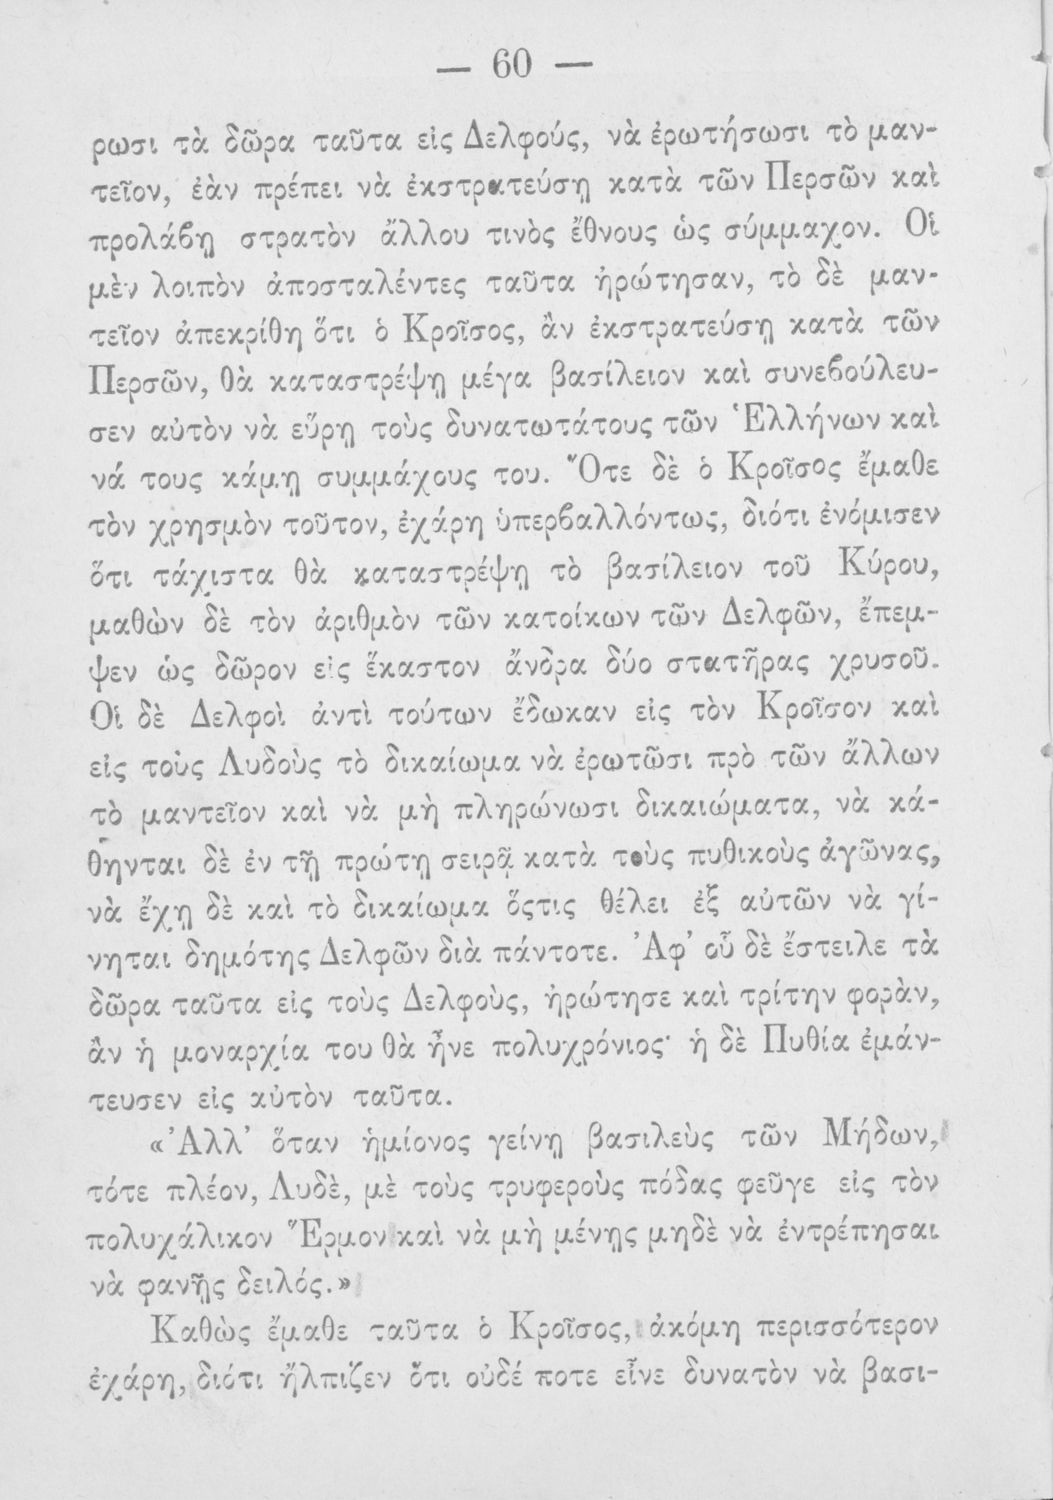 — 60 —
ρωσι τὰ δῶρα ταῦτα εἰς Δελφούς, νὰ ἐρωτήσωσι τὸ μαν-
τεῖον, ἐὰν πρέπει νὰ ἐκστρατεύσῃ κατὰ τῶν Περσῶν καὶ
προλάβῃ στρατὸν ἄλλου τινὸς ἔθνους ὡς σύμμαχον. Οἱ
μὲν λοιπὸν ἀποσταλέντες ταῦτα ἠρώτησαν, τὸ δὲ μαν-
τεῖον ἀπεκρίθη ὅτι ὁ Κροῖσος, ἂν ἐκστρατεύσῃ κατὰ τῶν
Περσῶν, θὰ καταστρέψῃ μέγα βασίλειον καὶ συνεβούλευ-
σεν αὐτὸν νὰ εὕρῃ τοὺς δυνατωτάτους τῶν Ἑλλήνων καὶ
νά τους κάμῃ συμμάχους του. Ὅτε δὲ ὁ Κροῖσος ἔμαθε
τὸν χρησμὸν τοῦτον, ἐχάρη ὑπερβαλλόντως, διότι ἐνόμισεν
ὅτι τάχιστα θὰ καταστρέψῃ τὸ βασίλειον τοῦ Κύρου,
μαθὼν δὲ τὸν ἀριθμὸν τῶν κατοίκων τῶν Δελφῶν, ἔπεμ-
ψεν ὡς δῶρον εἰς ἕκαστον ἄνδρα δύο στατῆρας χρυσοῦ.
Οἱ δὲ Δελφοὶ ἀντὶ τούτων ἔδωκαν εἰς τὸν Κροῖσον καὶ
εἰς τοὺς Λυδοὺς τὸ δικαίωμα νὰ ἐρωτῶσι πρὸ τῶν ἄλλων
τὸ μαντεῖον καὶ νὰ μὴ πληρώνωσι δικαιώματα, νὰ κά-
θηνται δὲ ἐν τῇ πρώτῃ σειρᾷ κατὰ τοὺς πυθικοὺς ἀγῶνας,
νὰ ἔχῃ δὲ καὶ τὸ δικαίωμα ὅςτις θέλει ἐξ αὐτῶν νὰ γί-
νηται δημότης Δελφῶν διὰ πάντοτε. Ἀφ' οὗ δὲ ἔστειλε τὰ
δῶρα ταῦτα εἰς τοὺς Δελφοὺς, ἠρώτησε καὶ τρίτην φορὰν,
ἂν ἡ μοναρχία του θὰ ἦνε πολυχρόνιος· ἡ δὲ Πυθία ἐμάν-
τευσεν εἰς αὐτὸν ταῦτα.
«Ἀλλ' ὅταν ἡμίονος γείνῃ βασιλεὺς τῶν Μήδων,
τότε πλέον, Λυδὲ, μὲ τοὺς τρυφεροὺς πόδας φεῦγε εἰς τὸν
πολυχάλικον Ἕρμον καὶ νὰ μὴ μένῃς μηδὲ νὰ ἐντρέπησαι
νὰ φανῇς δειλός.»
Καθὼς ἔμαθε ταῦτα ὁ Κροῖσος, ἀκόμη περισσότερον
ἐχάρη, διότι ἤλπιζεν ὅτι οὐδέ ποτε εἶνε δυνατὸν νὰ βασι-